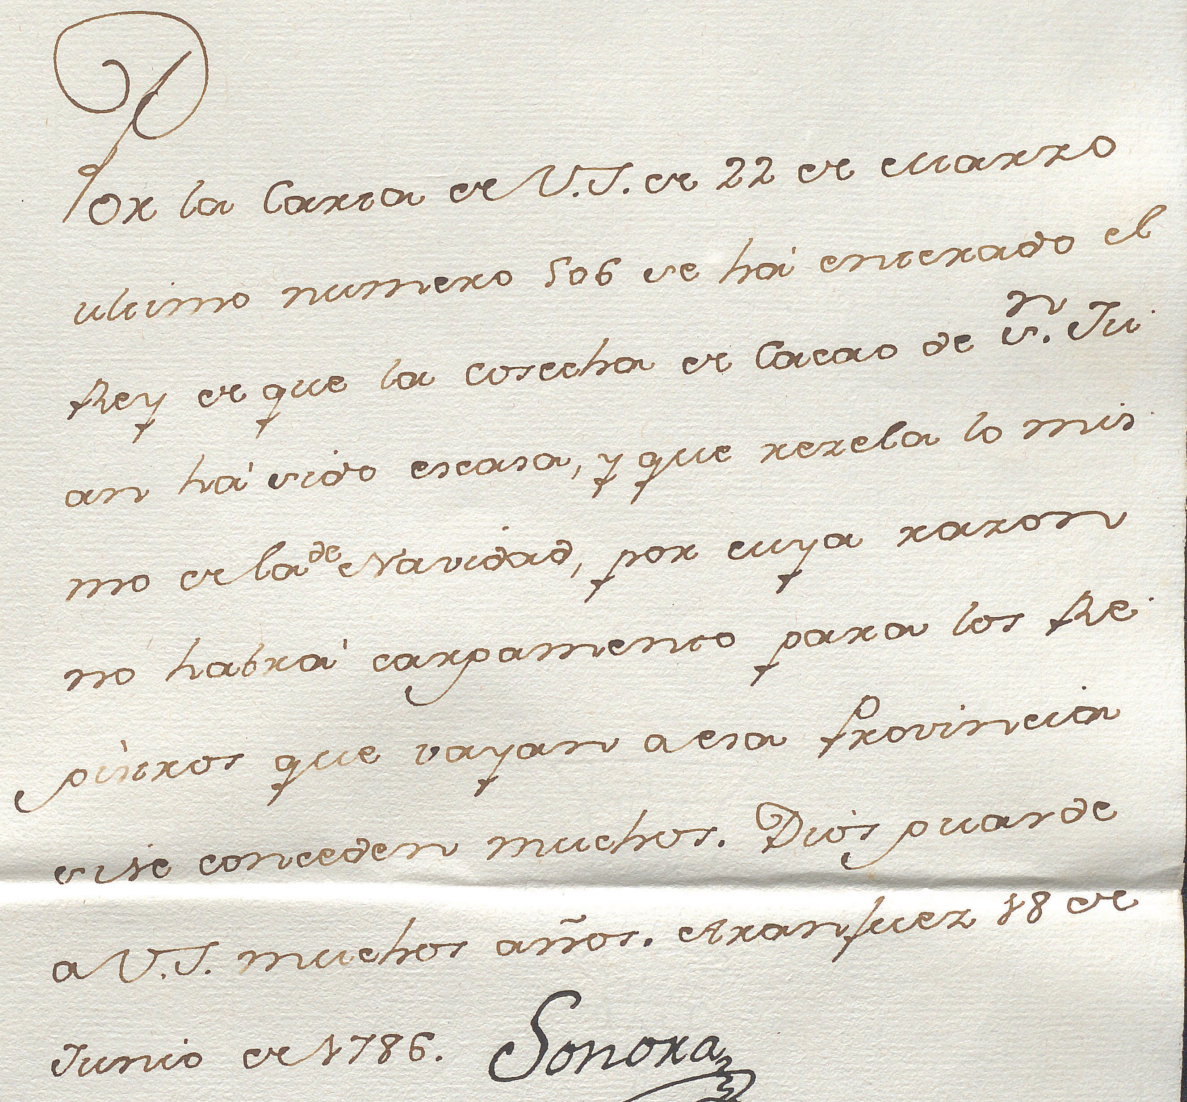 Por la Carta de V.S. de 22 de Marzo
ultimo numero 506 se há enterado el
Rey de que la cosecha de Cacao de Sn. Ju-
an há sido escasa, y que rezela lo mis-
mo de la de Navidad, por cuya razon
no habrá cargamento para los Re-
gistros que vayan a esa Provincia
si se conceden muchos. Dios guarde
a V.S. muchos años. Aranjuez 18 de
Junio de 1786. Sonora